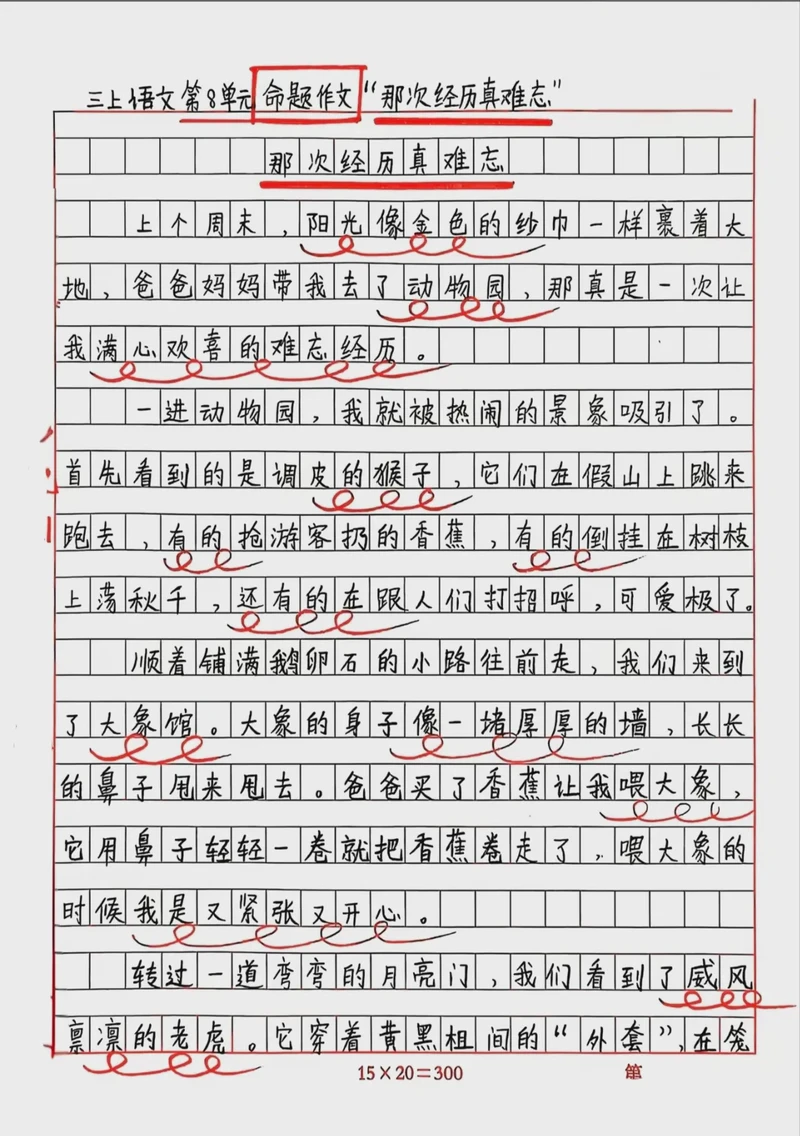 三上语文第8单元命题作文“那次经历真难忘”
那次经历真难忘
上个周末，阳光像金色的纱巾一样裹着大
地，爸爸妈妈带我去了动物园，那真是一次让
我满心欢喜的难忘经历。
一进动物园，我就被热闹的景象吸引了。
首先看到的是调皮的猴子，它们在假山上跳来
跑去，有的抢游客扔的香蕉，有的倒挂在树枝
上荡秋千，还有的在跟人们打招呼，可爱极了。
顺着铺满鹅卵石的小路往前走，我们来到
了大象馆。大象的身子像一堵厚厚的墙，长长
的鼻子甩来甩去。爸爸买了香蕉让我喂大象，
它用鼻子轻轻一卷就把香蕉卷走了，喂大象的
时候我是又紧张又开心。
转过一道弯弯的月亮门，我们看到了威风
凛凛的老虎。它穿着黄黑相间的“外套”，在笼
15×20=300 第